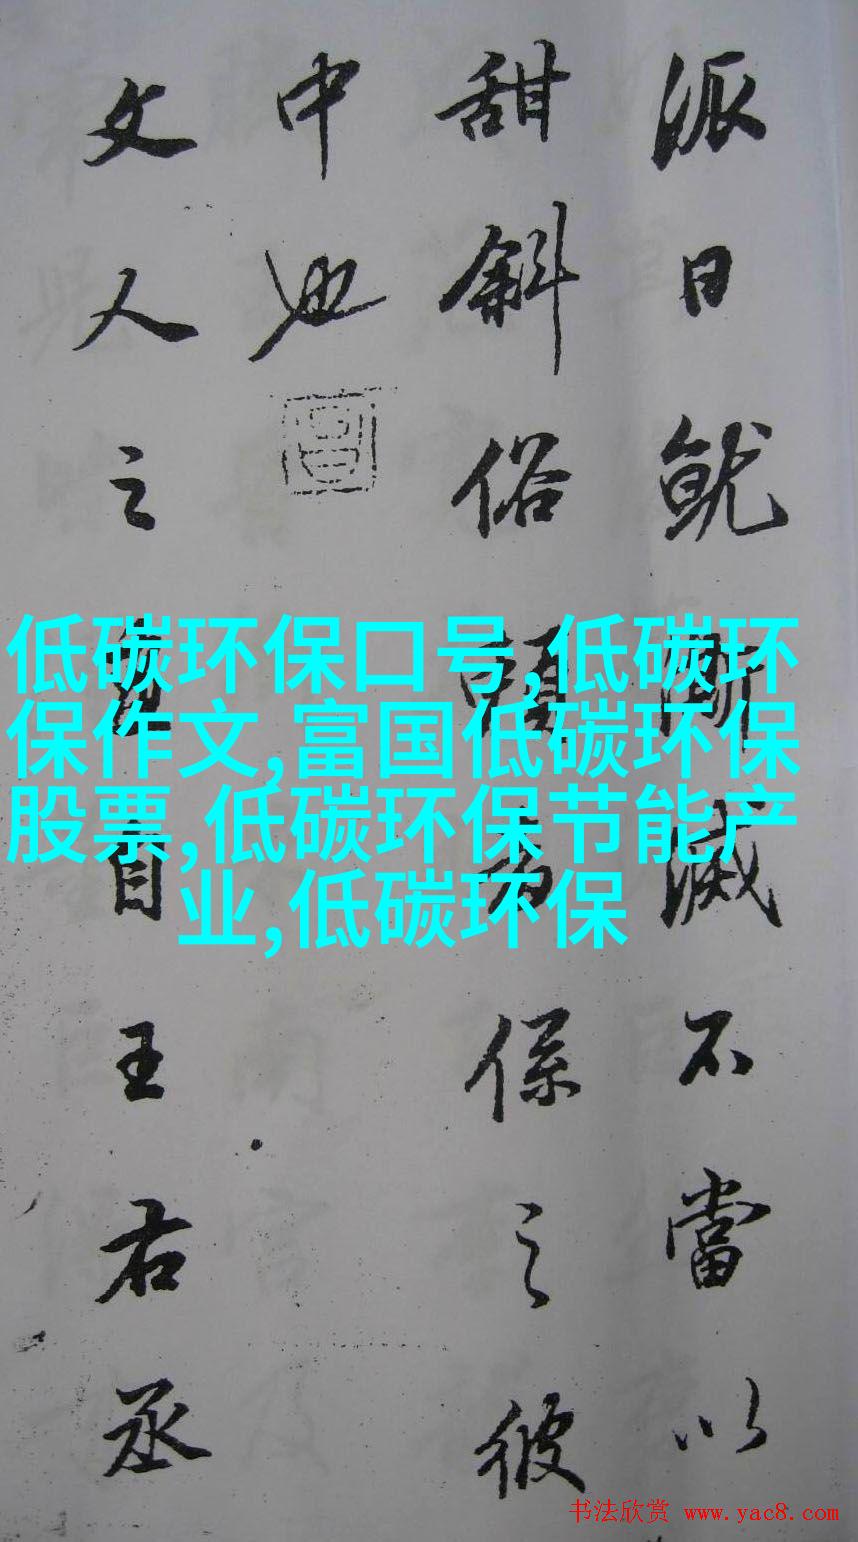 派日就漸滅不當以
甜斜俗係之彼
中也
文人之畫自王右丞
低碳环保口号,低碳环
保作文,富国低碳环保
股票,低碳环保节能产
业,低碳环保
书法欣赏 www.yac8.com